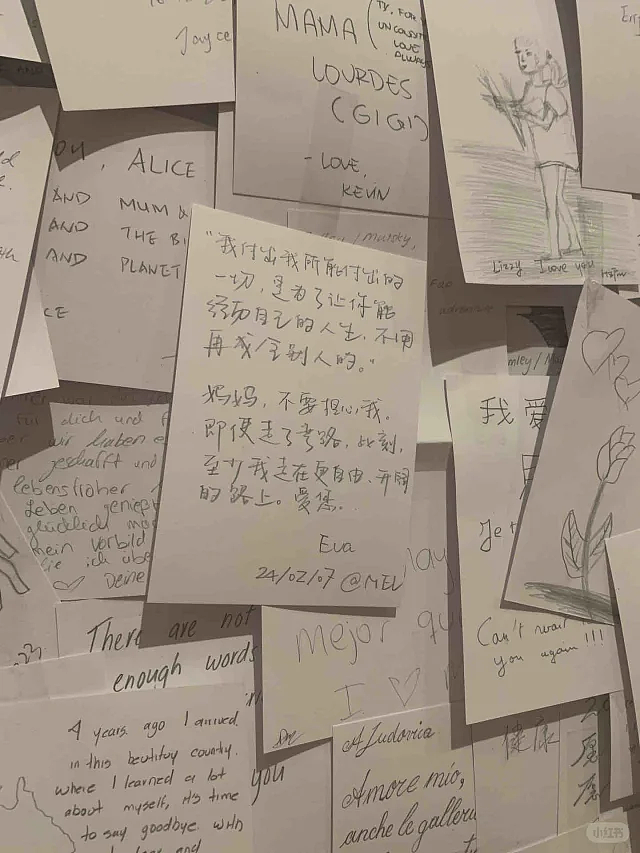 Joyce
MAMA
UNCONDITI
LOVE
ALWAYS
LOURDES
(GIGI)
- LOVE,
KEVIN
Lizzy I love you
ALICE
AND MUM &
AND THE B
AND PLANET
CE
"我付出我所能付出的
一切，是为了让你能
经历自己的人生，不用
再成全别人的。"
妈妈，不要担心我。
即便走了弯路，此刻，
至少我走在更自由、开阔
的路上。爱您。
Eva
24/02/07 @MEL
adventure
mley/
我爱
Je t
Can't wait
you again!!!
für dich und f
wir haben e
geschafft und
lebensfroher
Leben genieß
glücklich mac
mein Vorbild
die ich übe
Deine
There are not
enough words
you
mejor qu
I ♡
4 years ago I arrived
in this beautiful country.
where I learned a lot
about myself, it's time
to say goodbye. With
and
A Ludovica
Amore mio,
anche le galleri
健康
愿
小红书